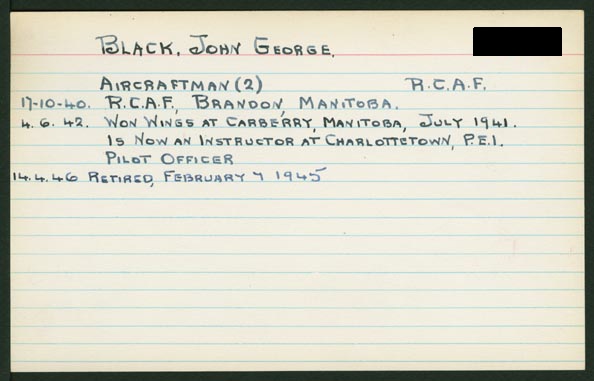 BLACK, JOHN GEORGE.
AIRCRAFTMAN (2) R.C.A.F.
17-10-40. R.C.A.F., BRANDON, MANITOBA.
4.6.42. WON WINGS AT CARBERRY, MANITOBA, JULY 1941.
IS NOW AN INSTRUCTOR AT CHARLOTTETOWN, P.E.I.
PILOT OFFICER
14.4.46 RETIRED, FEBRUARY 7 1945